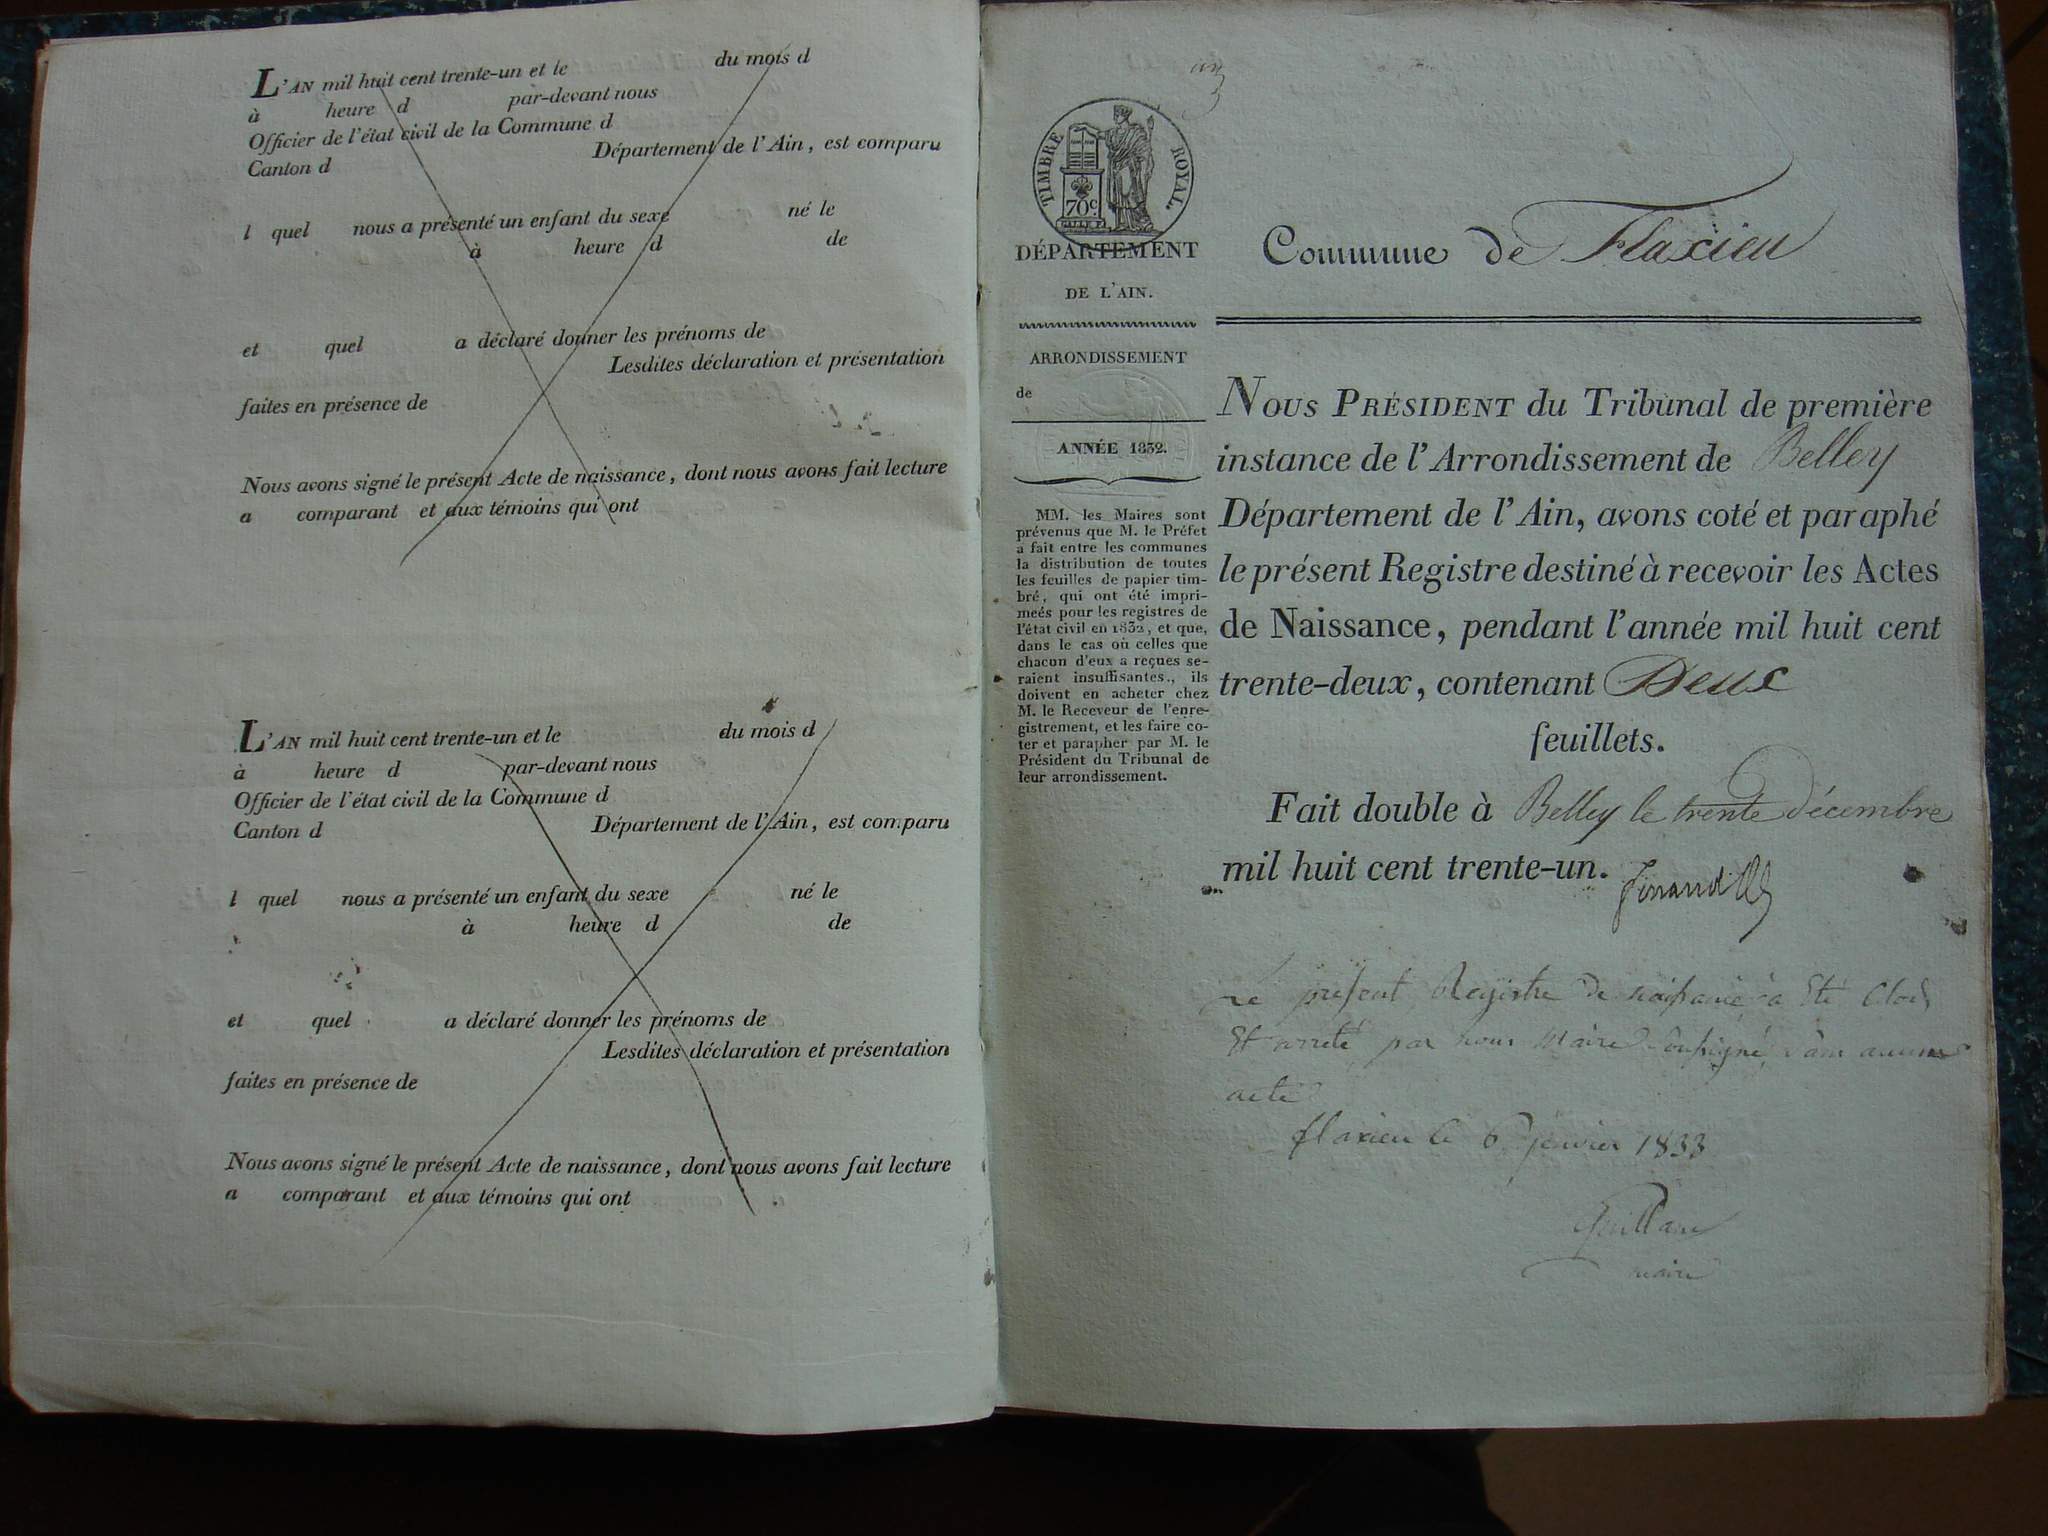 L'AN mil huit cent trente-un et le du mois d
à heure d par-devant nous
Officier de l'état civil de la Commune d
Canton d Département de l'Ain, est comparu
l quel nous a présenté un enfant du sexe né le
à heure d de
et quel a déclaré donner les prénoms de
Lesdites déclaration et présentation
faites en présence de
Nous avons signé le présent Acte de naissance, dont nous avons fait lecture
a comparant et aux témoins qui ont
L'AN mil huit cent trente-un et le du mois d
à heure d par-devant nous
Officier de l'état civil de la Commune d
Canton d Département de l'Ain, est comparu
l quel nous a présenté un enfant du sexe né le
à heure d de
et quel a déclaré donner les prénoms de
Lesdites déclaration et présentation
faites en présence de
Nous avons signé le présent Acte de naissance, dont nous avons fait lecture
a comparant et aux témoins qui ont
TIMBRE ROYAL
70c.
DÉPARTEMENT
DE L'AIN.
ARRONDISSEMENT
de
ANNÉE 1832.
MM. les Maires sont
prévenus que M. le Préfet
a fait entre les communes
la distribution de toutes
les feuilles de papier tim-
bré, qui ont été impri-
meés pour les registres de
l'état civil en 1832, et que,
dans le cas où celles que
chacun d'eux a reçues se-
raient insuffisantes., ils
doivent en acheter chez
M. le Receveur de l'enre-
gistrement, et les faire co-
ter et parapher par M. le
Président du Tribunal de
leur arrondissement.
Commune de Flaxieu
NOUS PRÉSIDENT du Tribunal de première
instance de l'Arrondissement de Belley
Département de l'Ain, avons coté et paraphé
le présent Registre destiné à recevoir les Actes
de Naissance, pendant l'année mil huit cent
trente-deux, contenant Deux
feuillets.
Fait double à Belley le trente décembre
mil huit cent trente-un.
Le présent Registre de naissance a Eté Clos
Et arreté par nous Maire Soussigné, sans aucun
acte
flaxieu le 6 janvier 1833
maire